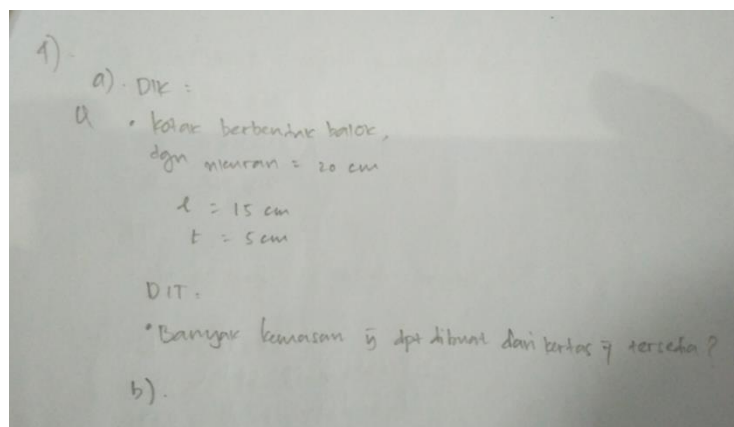 1).
a). DIK :
• kotak berbentuk balok,
dgn ukuran = 20 cm
l = 15 cm
t = 5 cm
DIT :
• Banyak kemasan yg dpt dibuat dari kertas yg tersedia?
b).